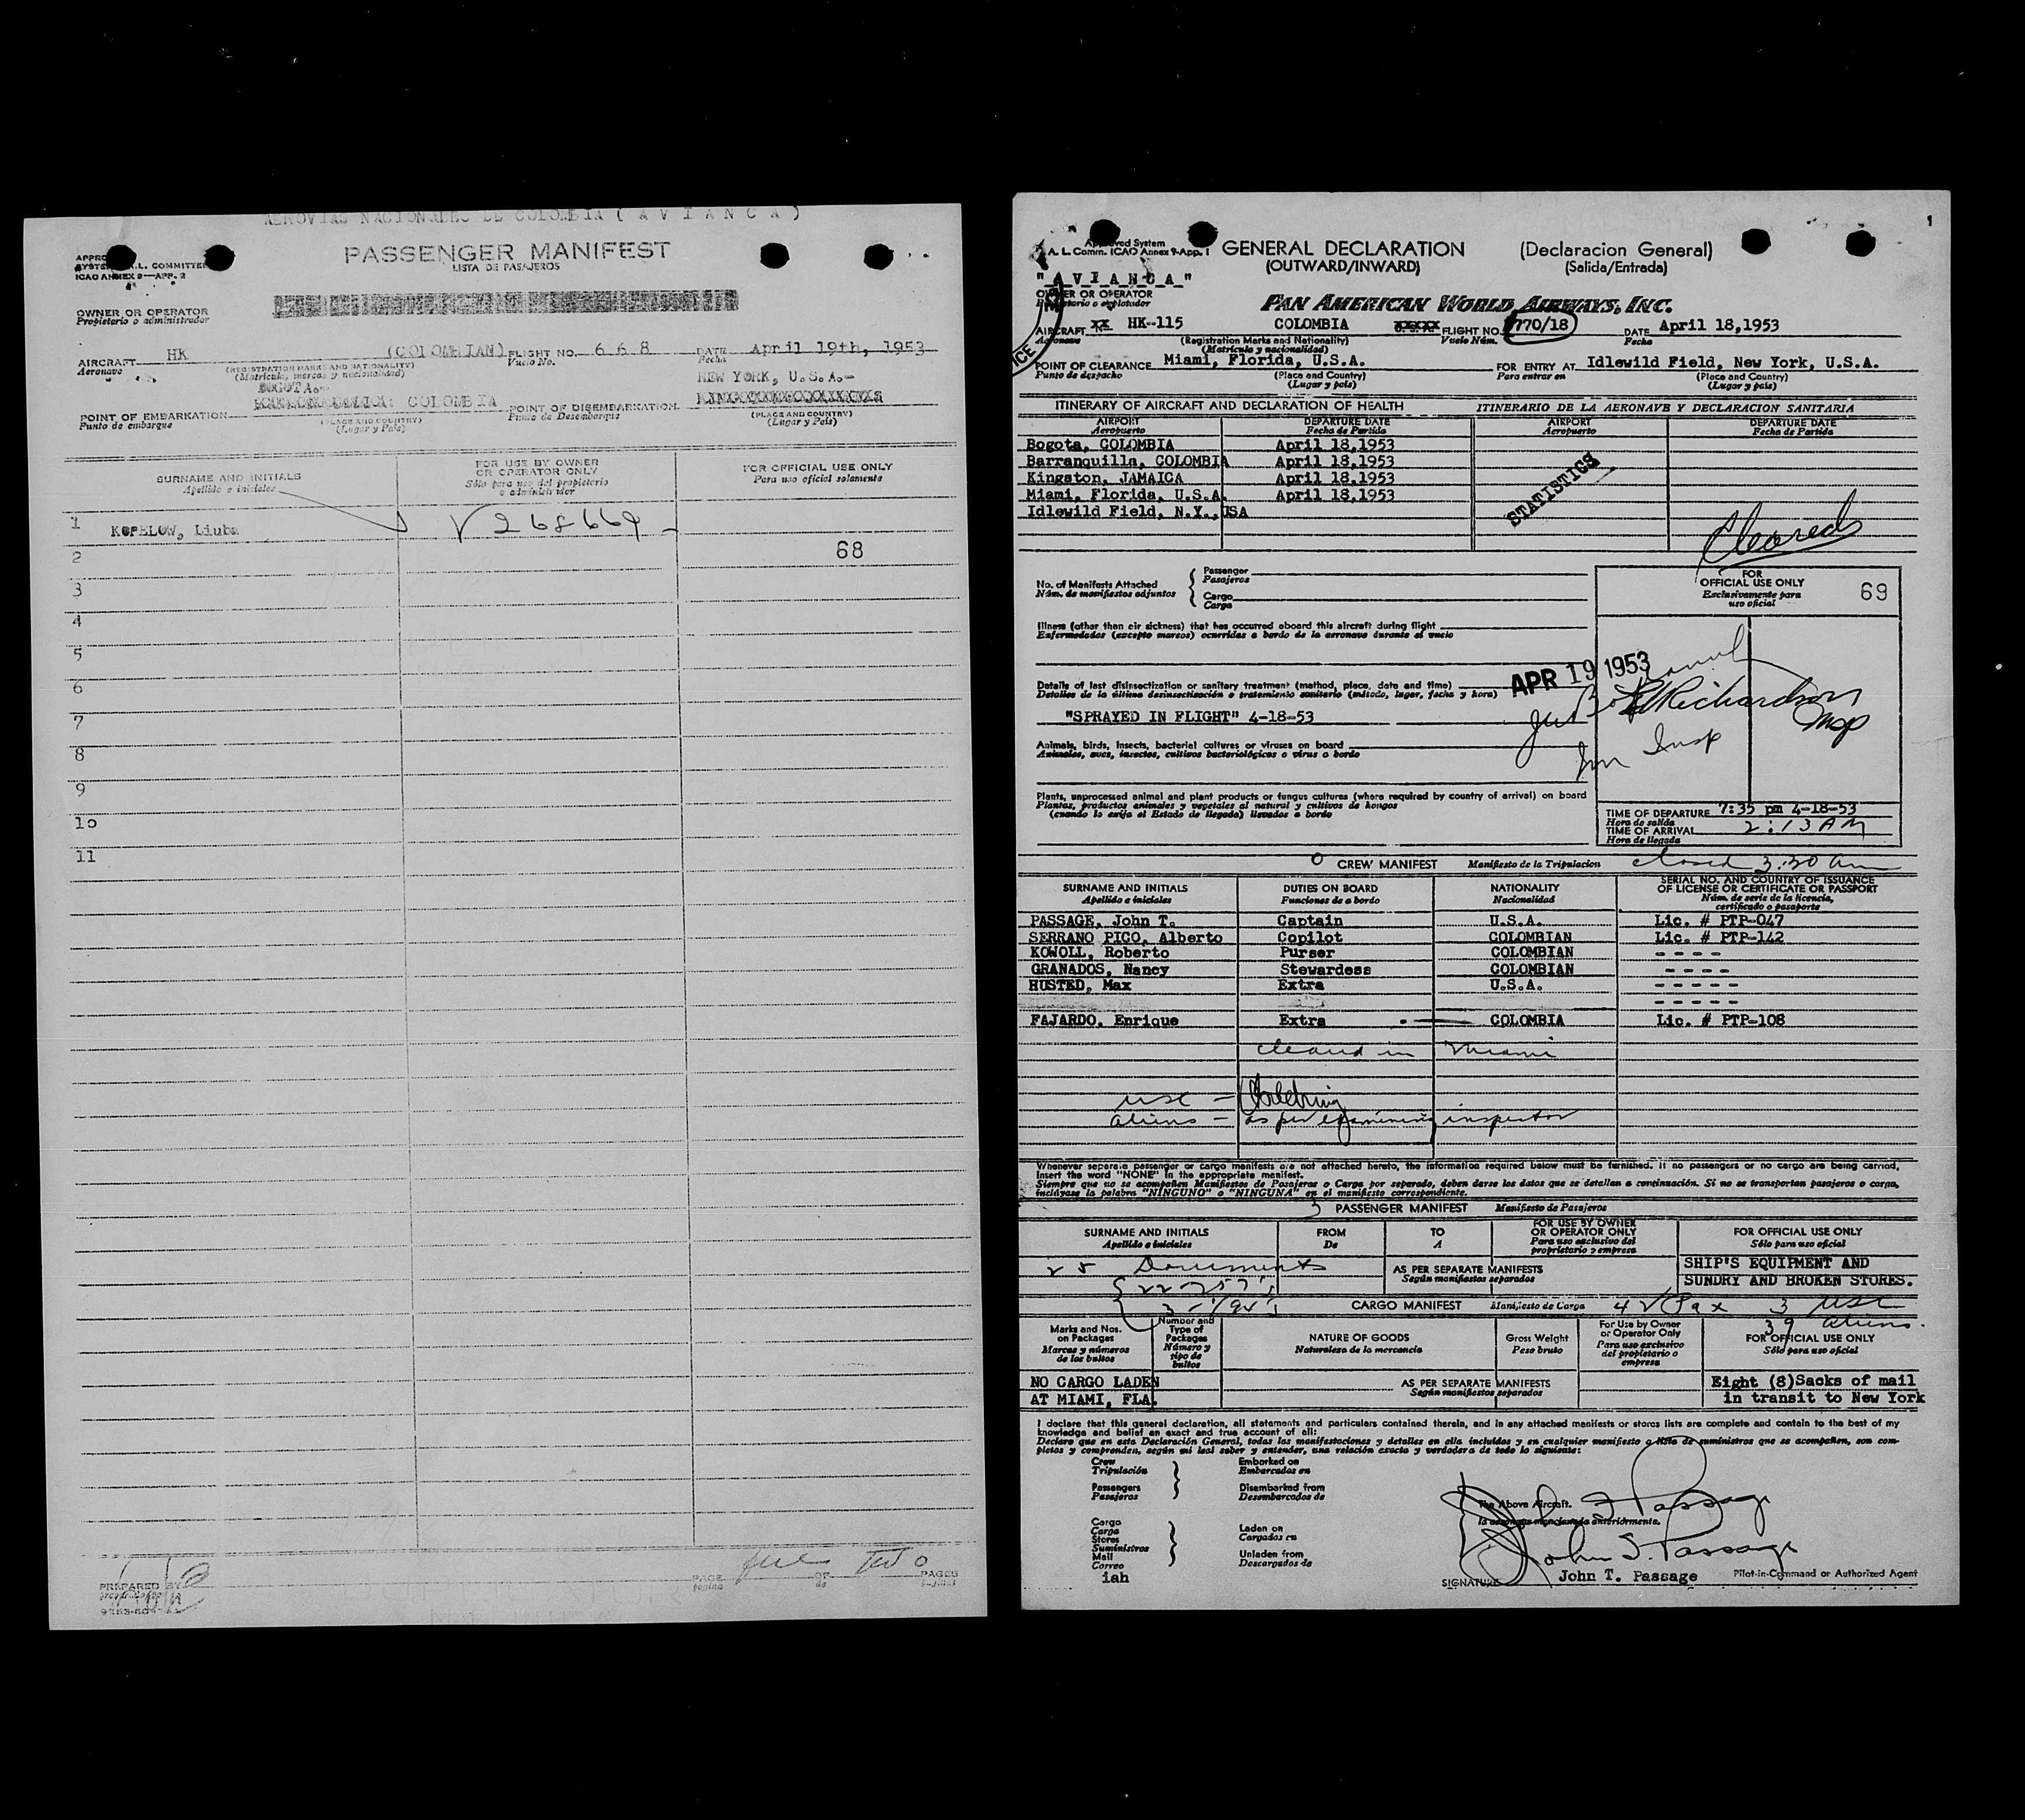 AEROVIAS NACIONALES DE COLOMBIA ( A V I A N C A )
PASSENGER MANIFEST
LISTA DE PASAJEROS
SYSTEM A.L. COMMITTEE
ICAO ANNEX 9—APP. 2
OWNER OR OPERATOR
Propietario o administrador
AIRCRAFT HK (COLOMBIAN) FLIGHT NO. 6 6 8 DATE April 19th, 1953
Aeronave (REGISTRATION MARKS AND NATIONALITY) Vuelo No. Fecha
(Matricula, marcas y nacionalidad)
BOGOTA.- NEW YORK, U.S.A.-
POINT OF EMBARKATION COLOMBIA POINT OF DISEMBARKATION
Punto de embarque (PLACE AND COUNTRY) Punto de Desembarque (PLACE AND COUNTRY)
(Lugar y País) (Lugar y País)
SURNAME AND INITIALS FOR USE BY OWNER OR OPERATOR ONLY FOR OFFICIAL USE ONLY
Apellido e iniciales Sólo para uso del propietario o administrador Para uso oficial solamente
1 KOPELOW, Liuba V 268669
2 68
3
4
5
6
7
8
9
10
11
PREPARED BY PAGE OF Two PAGES
1
Approved System
A. L. Comm. ICAO Annex 9-App. 1
GENERAL DECLARATION (Declaracion General)
(OUTWARD/INWARD) (Salida/Entrada)
"A V I A N C A"
OWNER OR OPERATOR
Propietario o explotador
PAN AMERICAN WORLD AIRWAYS, INC.
AIRCRAFT XX HK-115 COLOMBIA XXXXX FLIGHT NO. 770/18 DATE April 18,1953
Aeronave (Registration Marks and Nationality) Vuelo Núm. Fecha
(Matricula y nacionalidad)
POINT OF CLEARANCE Miami, Florida, U.S.A. FOR ENTRY AT Idlewild Field, New York, U.S.A.
Punto de despacho (Place and Country) Para entrar en (Place and Country)
(Lugar y país) (Lugar y país)
ITINERARY OF AIRCRAFT AND DECLARATION OF HEALTH ITINERARIO DE LA AERONAVE Y DECLARACION SANITARIA
AIRPORT DEPARTURE DATE AIRPORT DEPARTURE DATE
Aeropuerto Fecha de Partida Aeropuerto Fecha de Partida
Bogota, COLOMBIA April 18,1953
Barranquilla, COLOMBIA April 18,1953
Kingston, JAMAICA April 18,1953
Miami, Florida, U.S.A. April 18,1953
Idlewild Field, N.Y.,USA
STATISTICS
Cleared
No. of Manifests Attached
Núm. de manifiestos adjuntos
Passenger
Pasajeros
Cargo
Carga
FOR
OFFICIAL USE ONLY
Exclusivamente para
uso oficial
69
Illness (other than air sickness) that has occurred aboard this aircraft during flight
Enfermedades (excepto mareos) ocurridas a bordo de la aeronave durante el vuelo
APR 19 1953
Details of last disinsectization or sanitary treatment (method, place, date and time)
Detalles de la última desinsectización o tratamiento sanitario (método, lugar, fecha y hora)
"SPRAYED IN FLIGHT" 4-18-53
Richardson
Insp
Insp
Animals, birds, insects, bacterial cultures or viruses on board
Animales, aves, insectos, cultivos bacteriológicos o virus a bordo
Plants, unprocessed animal and plant products or fungus cultures (where required by country of arrival) on board
Plantas, productos animales y vegetales al natural y cultivos de hongos
(cuando lo exija el Estado de llegada) llevados a bordo
TIME OF DEPARTURE 7:35 pm 4-18-53
Hora de salida
TIME OF ARRIVAL 2:13 AM
Hora de llegada
CREW MANIFEST Manifiesto de la Tripulacion closed 3:30 am
SURNAME AND INITIALS DUTIES ON BOARD NATIONALITY SERIAL NO. AND COUNTRY OF ISSUANCE OF LICENSE OR CERTIFICATE OR PASSPORT
Apellido e iniciales Funciones de a bordo Nacionalidad Núm. de serie de la licencia, certificado o pasaporte
PASSAGE, John T. Captain U.S.A. Lic. # PTP-047
SERRANO PICO, Alberto Copilot COLOMBIAN Lic. # PTP-142
KOWOLL, Roberto Purser COLOMBIAN - - - -
GRANADOS, Nancy Stewardess COLOMBIAN - - - -
HUSTED, Max Extra U.S.A. - - - - -
- - - - -
FAJARDO, Enrique Extra COLOMBIA Lic. # PTP-108
cleared in Miami
usc -
aliens - as per examining inspector
Whenever separate passenger or cargo manifests are not attached hereto, the information required below must be furnished. If no passengers or no cargo are being carried,
insert the word "NONE" in the appropriate manifest.
Siempre que no se acompañen Manifiestos de Pasajeros o Carga por separado, deben darse los datos que se detallan a continuación. Si no se transportan pasajeros o carga,
inclúyase la palabra "NINGUNO" o "NINGUNA" en el manifiesto correspondiente.
PASSENGER MANIFEST Manifiesto de Pasajeros
SURNAME AND INITIALS FROM TO FOR USE BY OWNER OR OPERATOR ONLY FOR OFFICIAL USE ONLY
Apellido e iniciales De A Para uso exclusivo del proprietario o empresa Sólo para uso oficial
25 Documents AS PER SEPARATE MANIFESTS SHIP'S EQUIPMENT AND
22 - 257's Según manifiestos separados SUNDRY AND BROKEN STORES.
3 - I/94's CARGO MANIFEST Manifiesto de Carga 42 Pax 3 usc
39 aliens.
Marks and Nos. on Packages Number and Type of Packages NATURE OF GOODS Gross Weight For Use by Owner or Operator Only FOR OFFICIAL USE ONLY
Marcas y números de los bultos Número y tipo de bultos Naturaleza de la mercancía Peso bruto Para uso exclusivo del propietario o empresa Sólo para uso oficial
NO CARGO LADEN AS PER SEPARATE MANIFESTS Eight (8)Sacks of mail
AT MIAMI, FLA. Según manifiestos separados in transit to New York
I declare that this general declaration, all statements and particulars contained therein, and in any attached manifests or stores lists are complete and contain to the best of my
knowledge and belief an exact and true account of all:
Declaro que en esta Declaración General, todas las manifestaciones y detalles en ella incluídos y en cualquier manifiesto o lista de suministros que se acompañen, son com-
pletos y comprenden, según mi leal saber y entender, una relación exacta y verdadera de todo lo siguiente:
Crew Embarked on
Tripulación Embarcados en
Passengers Disembarked from
Pasajeros Desembarcados de
The Above Aircraft.
la aeronave mencionada anteriormente.
Cargo
Carga
Stores
Suministros
Mail
Correo
Laden on
Cargados en
Unladen from
Descargados de
iah
John T. Passage
John T. Passage
SIGNATURE John T. Passage Pilot-in-Command or Authorized Agent